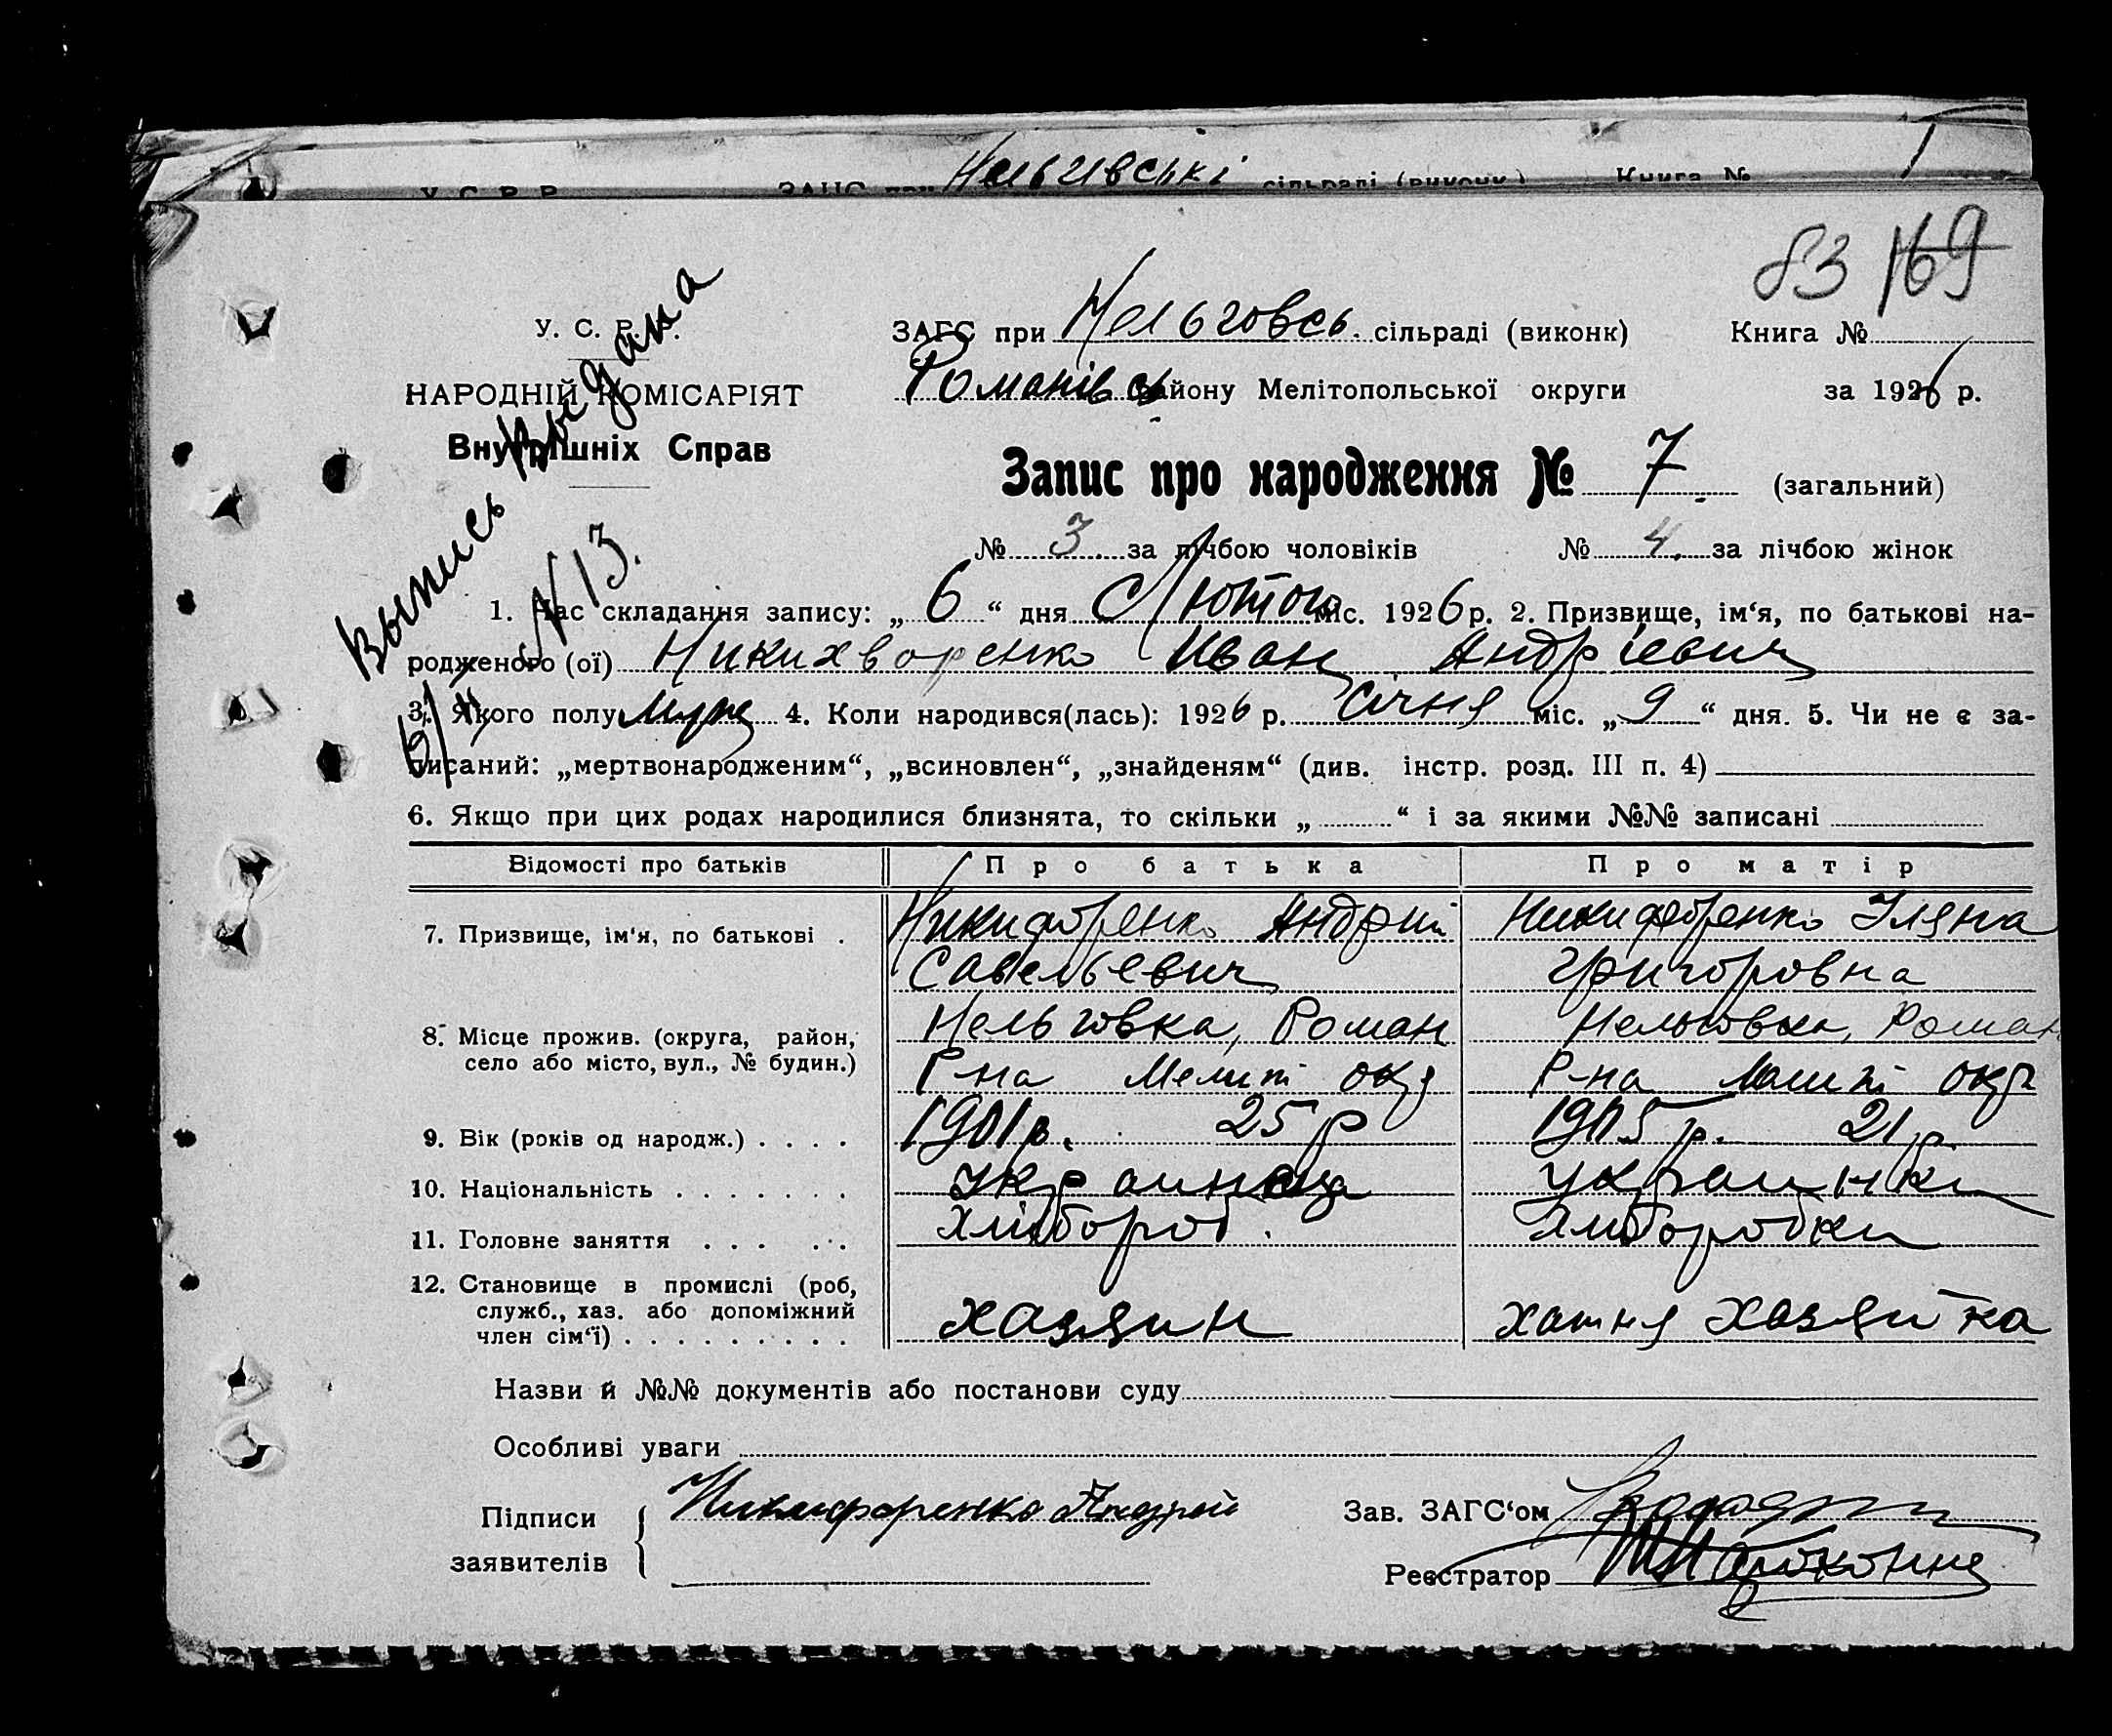 Нельгівські сільраді (виконк) Книга № 1
83 169
У. С. Р. Р.
ЗАГС при Нельговсь. сільраді (виконк) Книга №
НАРОДНІЙ КОМІСАРІЯТ
Романівсь району Мелітопольської округи за 1926 р.
Внутрішніх Справ
Выпись выдана
N 13.
Запис про народження № 7. (загальний)
№ 3 за лічбою чоловіків № 4. за лічбою жінок
1. Час складання запису: „ 6 “ дня Лютого міс. 1926 р. 2. Призвище, ім‘я, по батькові на-
родженого (ої) Никихворенко Иван Андріевич
3. Якого полу Муж 4. Коли народився(лась): 1926 р. Січня міс. „ 9 “ дня. 5. Чи не є за-
писаний: „мертвонародженим“, „всиновлен“, „знайденям“ (див. інстр. розд. III п. 4)
6. Якщо при цих родах народилися близнята, то скільки „ “ і за якими №№ записані
Відомості про батьків Про батька Про матір
7. Призвище, ім‘я, по батькові . Никифоренко Андрий Никифоренко Уляна
Савельевич Григоровна
8. Місце прожив. (округа, район, Нельговка, Роман Нельговка, Роман
село або місто, вул., № будин.) Р-на Мелит окр Р-на Мелит окр
9. Вік (років од народж.) . . . . 1901 р. 25 р 1905 р. 21 р.
10. Національність . . . . . . . Украинець Украинка
11. Головне заняття . . . . . Хлібороб. Хліборобка
12. Становище в промислі (роб,
служб., хаз. або допоміжний
член сім‘ї) . . . . . . . . . хазяин хатня хазяйка
Назви й №№ документів або постанови суду
Особливі уваги
Підписи Никифоренко Андрей Зав. ЗАГС‘ом
заявителів
Реєстратор